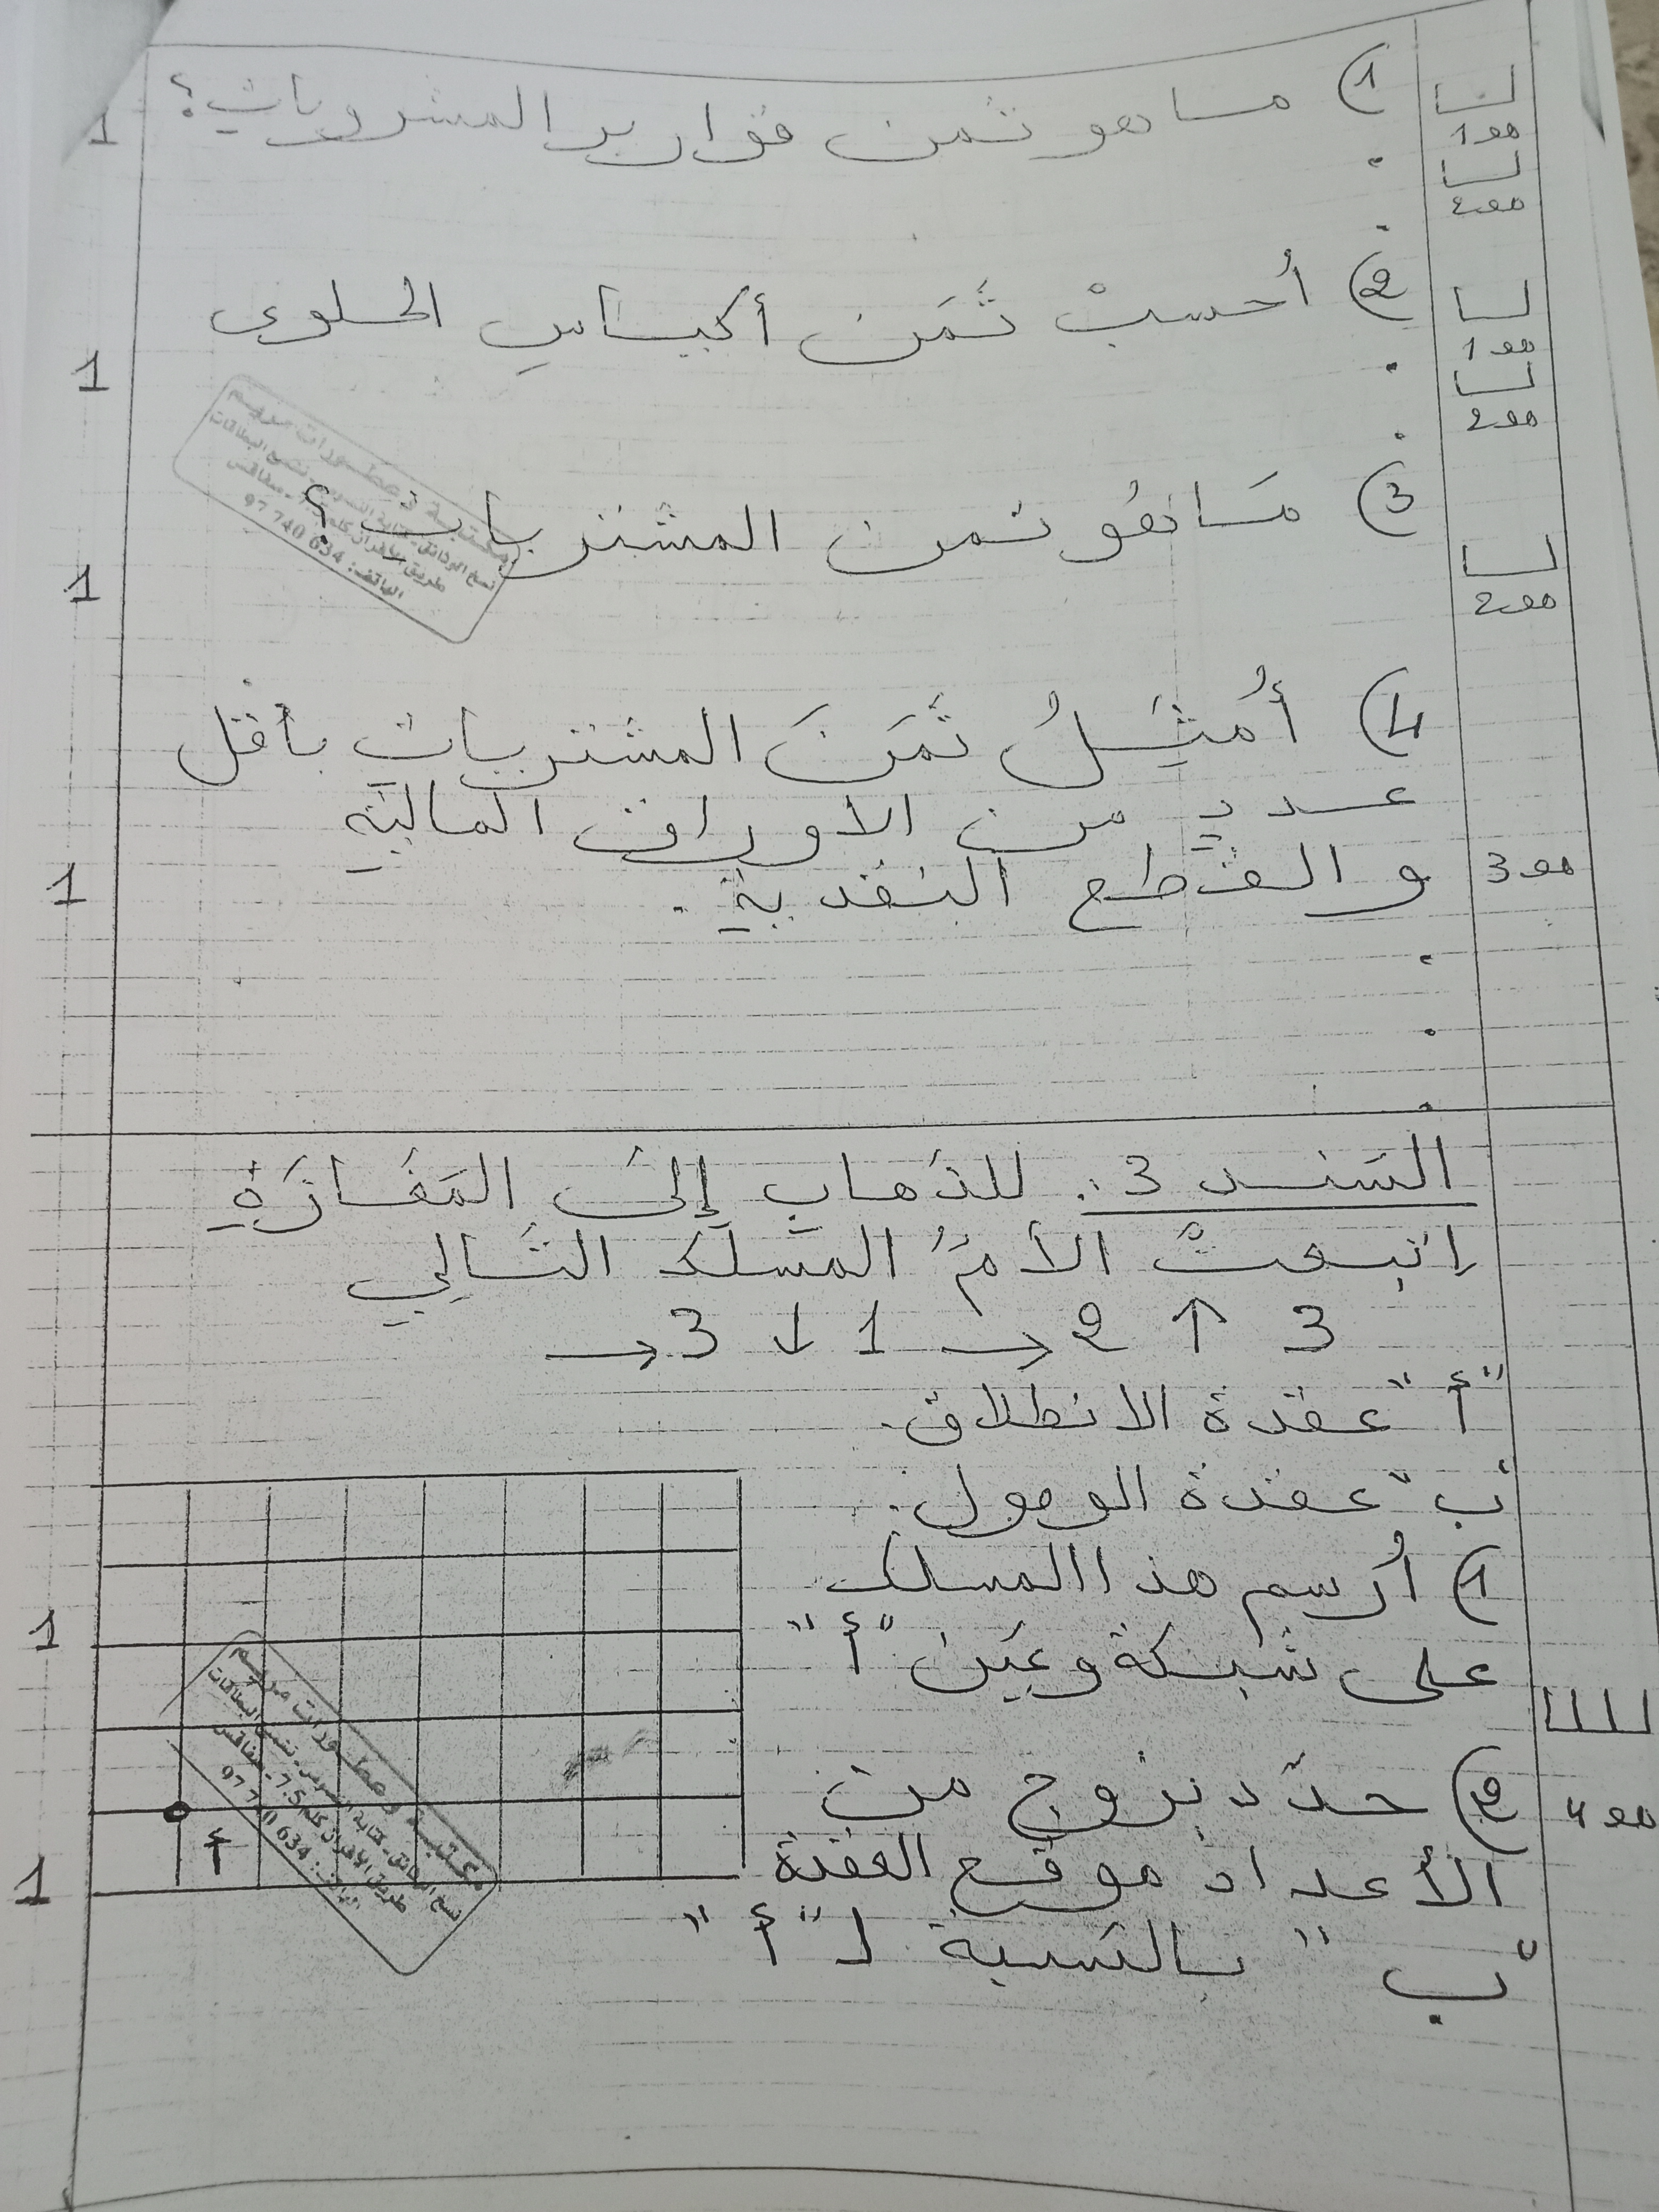 1) ما هو ثمن قوارير المشروبات؟
1
لـا
مع1
لـا
مع2
2) أحسبْ ثَمَن أكياس الحلوى
1
لـا
مع1
لـا
مع2
3) مَا هُو ثمن المشتريات؟
1
لـا
مع2
مكتبة و عطورات مريم
97 740 634 :الهاتف
4) أُمَثِّلُ ثَمَنَ المشتريات بأقل
عدد من الاوراق المالية
و القطع النقدية.
1
مع3
السند 3: للذهاب إلى المَغَازَةِ
اتبعتْ الأمُّ المسلك التَّالِي
3 ↑ 2 → 1 ↓ 3 →
"أ" عقدة الانطلاق.
"ب" عقدة الوصول.
1) أرسم هذا المسلك
على شبكة وعيّن "أ"
1
2) حدّد بزوج من
الأعداد موقع العقدة
"ب" بالنسبة لـ "أ"
1
مع4
أ
مكتبة و عطورات مريم
97 740 634